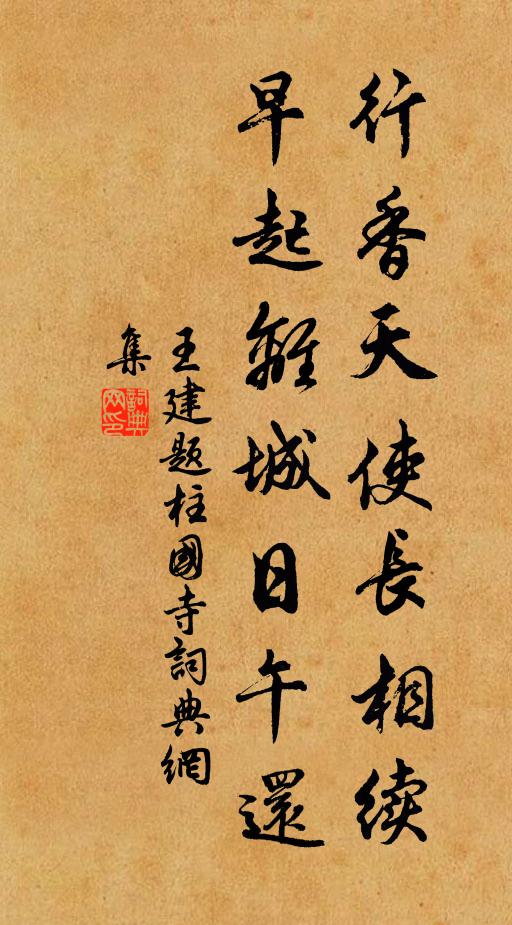 行香天使長相续
早起離城日午還
王建題柱國寺詞典網
集
詞典網印